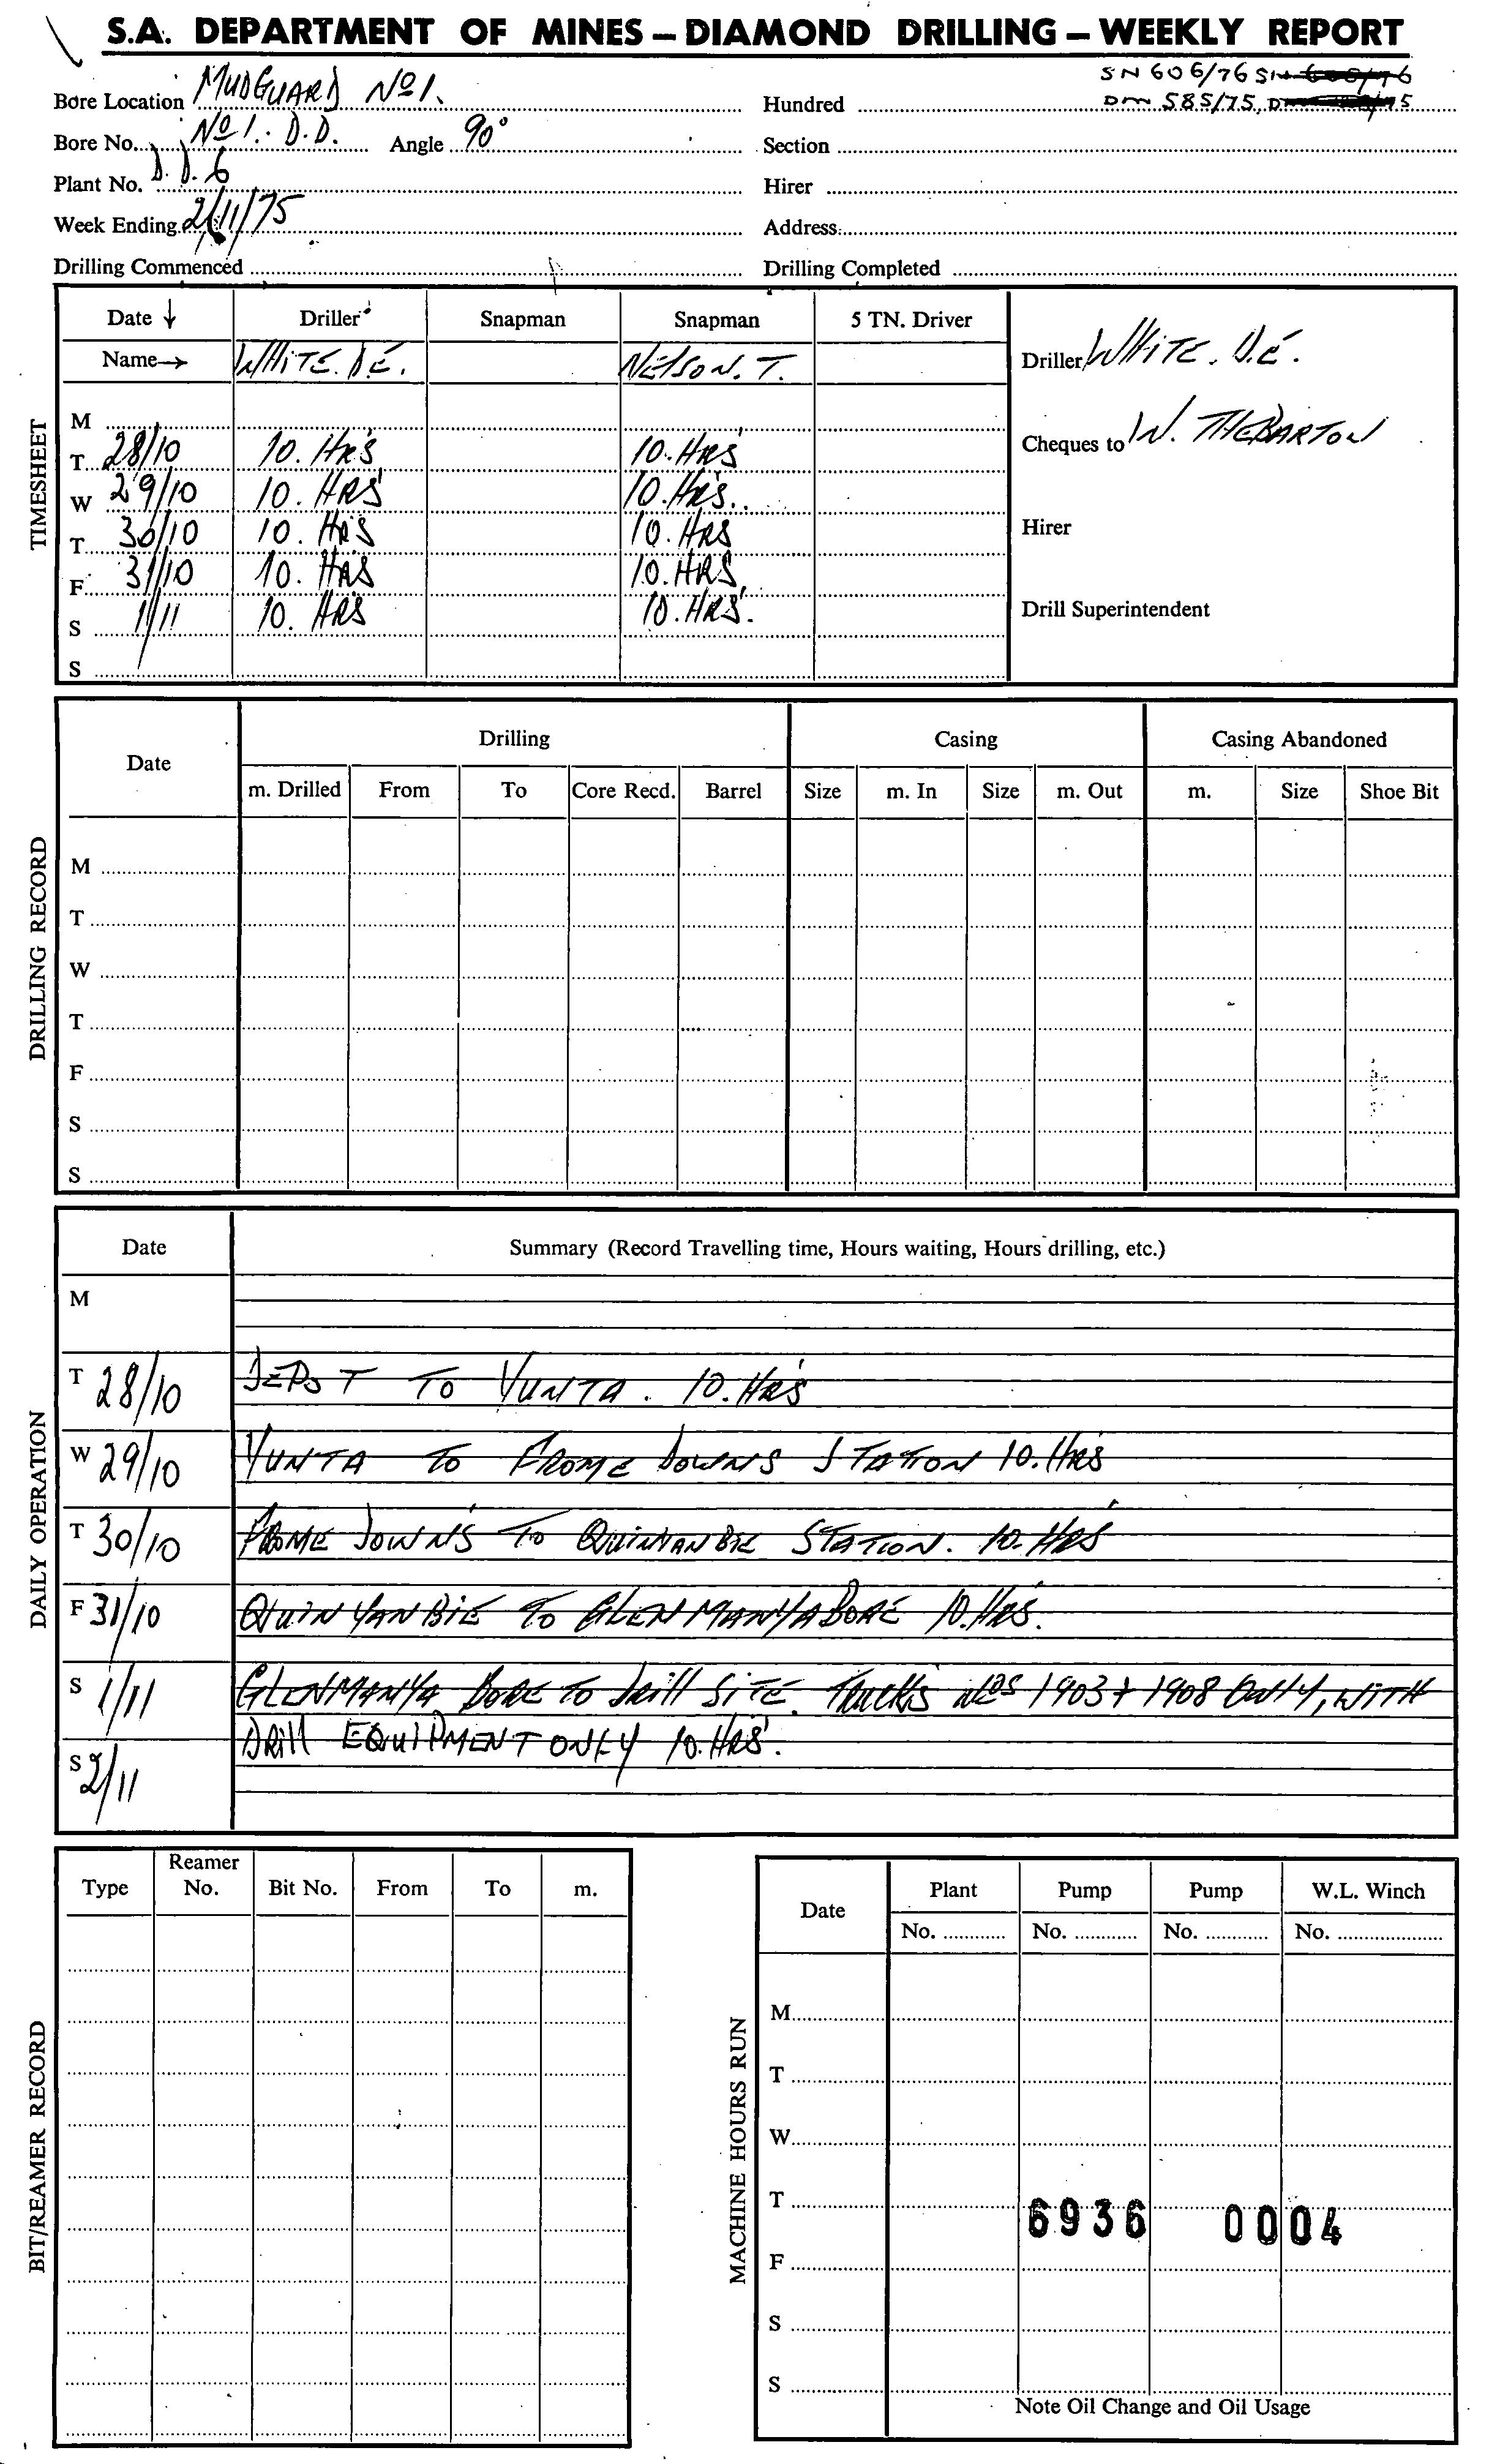 S.A. DEPARTMENT OF MINES – DIAMOND DRILLING – WEEKLY REPORT
SN 606/76 SN
DM 585/75, DM
Bore Location MUDGUARD No1.
Hundred
Bore No. No1. D.D. Angle 90°
Section
Plant No. D.D.6
Hirer
Week Ending 2/11/75
Address
Drilling Commenced
Drilling Completed
TIMESHEET
Date ↓ Driller Snapman Snapman 5 TN. Driver
Name→ WHITE. D.E. NELSON. T.
Driller WHITE. D.E.
M
Cheques to W. THEBARTON
T 28/10 10. HRS 10. HRS
W 29/10 10. HRS 10. HRS.
T 30/10 10. HRS 10. HRS
Hirer
F 31/10 10. HRS 10. HRS
S 1/11 10. HRS 10. HRS.
Drill Superintendent
S
DRILLING RECORD
Date Drilling Casing Casing Abandoned
m. Drilled From To Core Recd. Barrel Size m. In Size m. Out m. Size Shoe Bit
M
T
W
T
F
S
S
DAILY OPERATION
Date Summary (Record Travelling time, Hours waiting, Hours drilling, etc.)
M
T 28/10 DEPOT TO YUNTA. 10. HRS
W 29/10 YUNTA TO FROME DOWNS STATION 10. HRS
T 30/10 FROME DOWNS TO QUINYANBIE STATION. 10. HRS
F 31/10 QUINYANBIE TO GLENMANYA BORE 10. HRS.
S 1/11 GLENMANYA BORE TO DRILL SITE. TRUCKS Nos 1903 + 1908 ONLY, WITH
DRILL EQUIPMENT ONLY 10. HRS.
S 2/11
BIT/REAMER RECORD
Type Reamer No. Bit No. From To m.
MACHINE HOURS RUN
Date Plant Pump Pump W.L. Winch
No. No. No. No.
M
T
W
T
6936 0004
F
S
S
Note Oil Change and Oil Usage